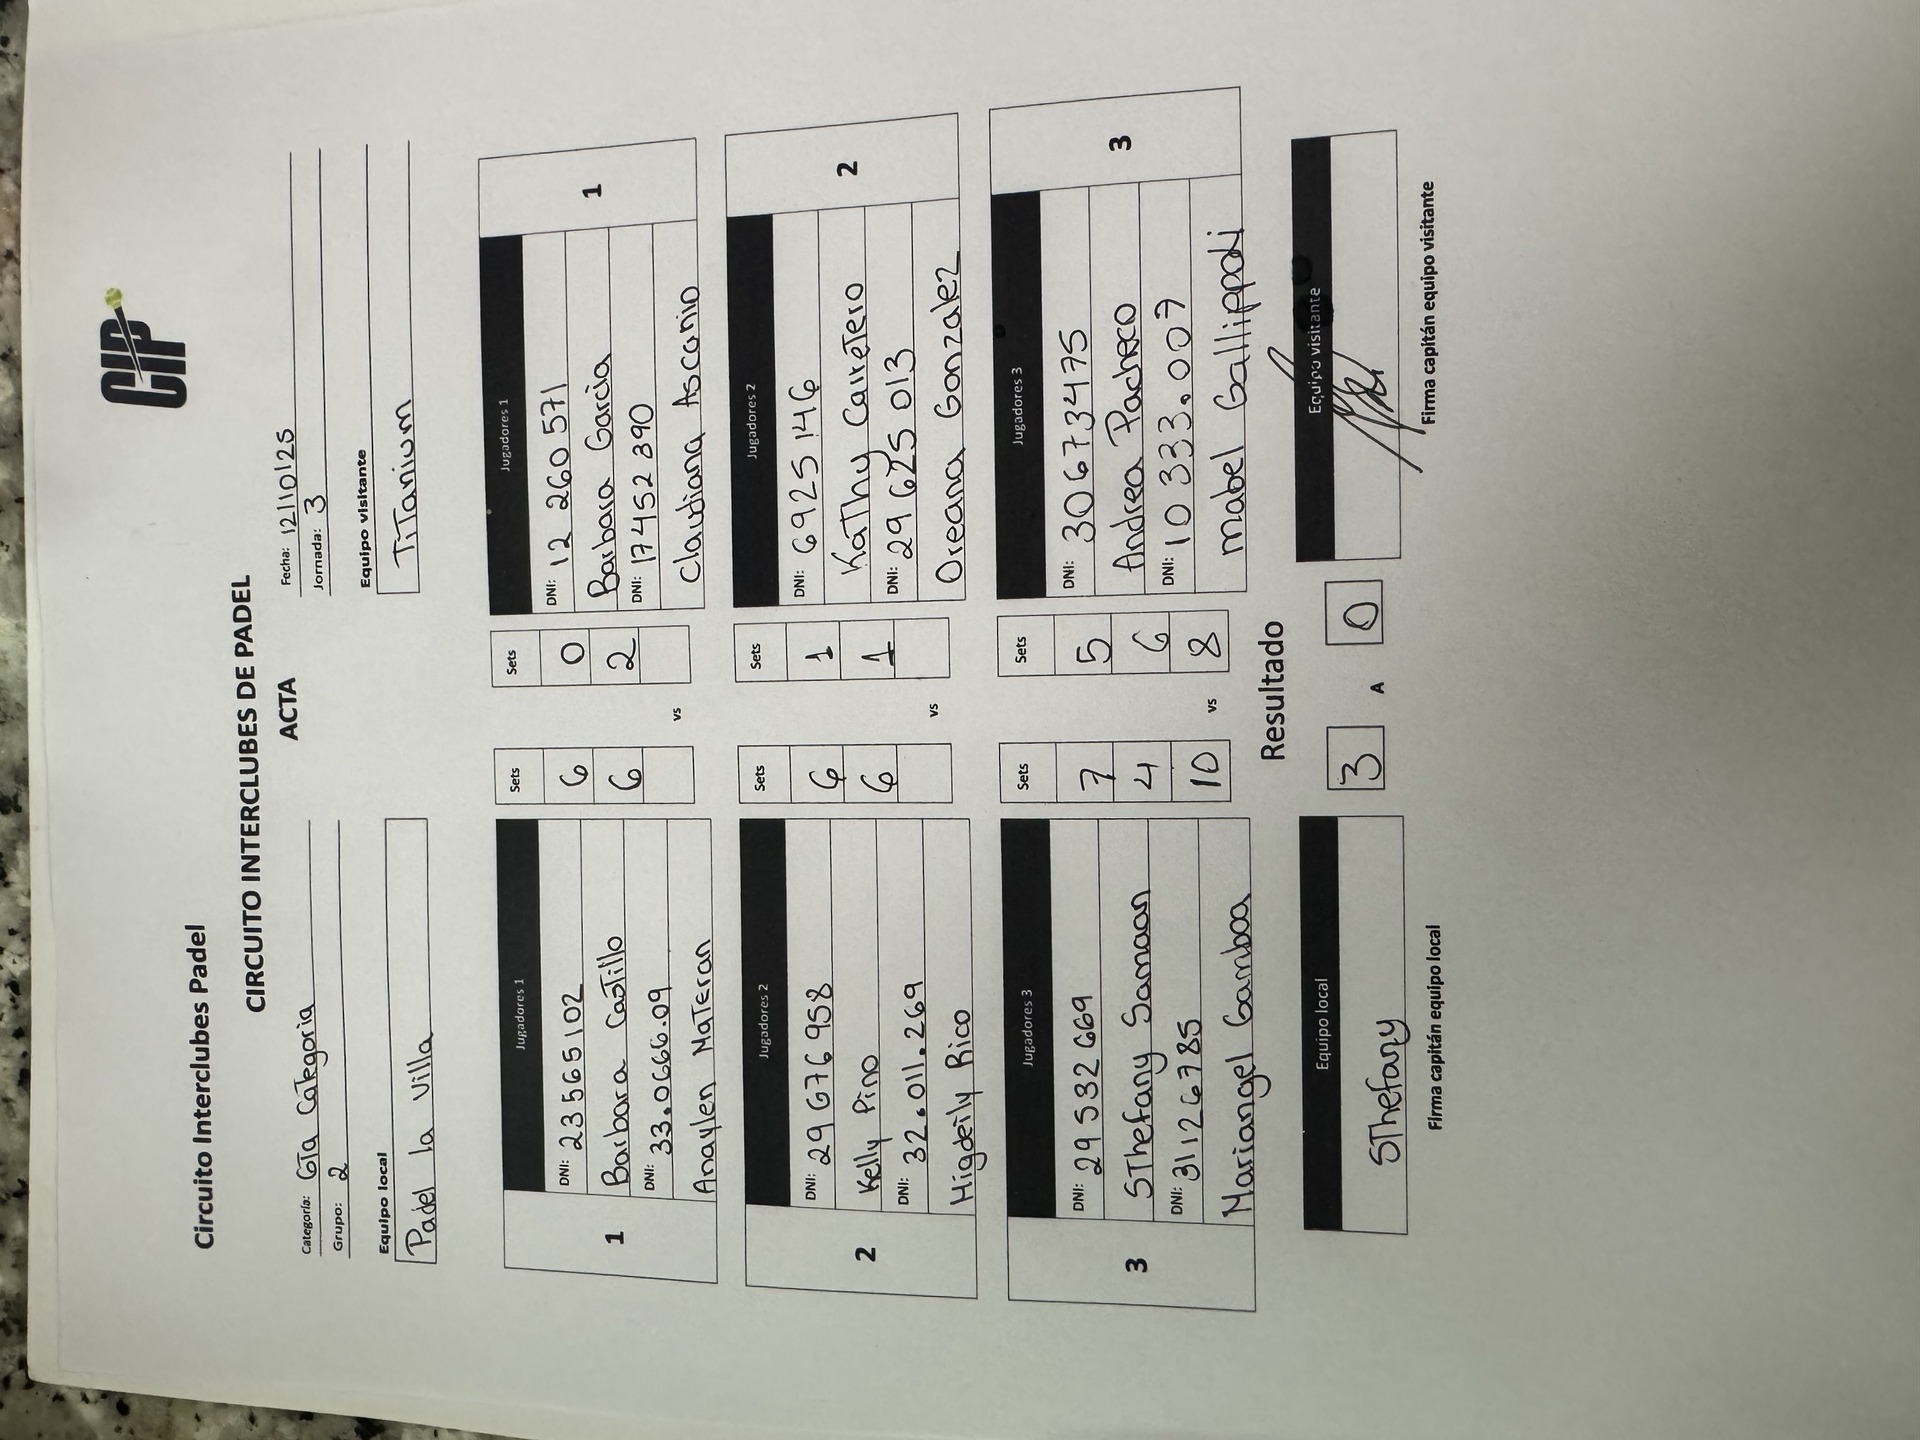 CIP
Circuito Interclubes Padel
CIRCUITO INTERCLUBES DE PADEL
ACTA
Categoría: 6Ta Categoria
Fecha: 12/10/25
Grupo: 2
Jornada: 3
Equipo local
Equipo visitante
Padel la Villa
TiTanium
1 Jugadores 1 Sets Sets Jugadores 1 1
DNI: 23565102 6 0 DNI: 12 260 571
Barbara CasTillo 6 2 Barbara Garcia
DNI: 33.0666.09 DNI: 17452 890
Anaylen MaTeran vs Claudiana Ascanio
2 Jugadores 2 Sets Sets Jugadores 2 2
DNI: 29 676 958 6 1 DNI: 6925 146
Kelly Pino 6 1 KaThy CarreTero
DNI: 32.011.269 DNI: 29 625 013
Higdeily Rico vs Oreana Gonzalez
3 Jugadores 3 Sets Sets Jugadores 3 3
DNI: 29 532 669 7 5 DNI: 30673475
SThefany Samaan 4 6 Andrea Pacheco
DNI: 31126785 10 vs 8 DNI: 10 333.007
Mariangel Gamboa Mabel Gallippoli
Resultado
Equipo local 3 A 0 Equipo visitante
SThefany
Firma capitán equipo local
Firma capitán equipo visitante